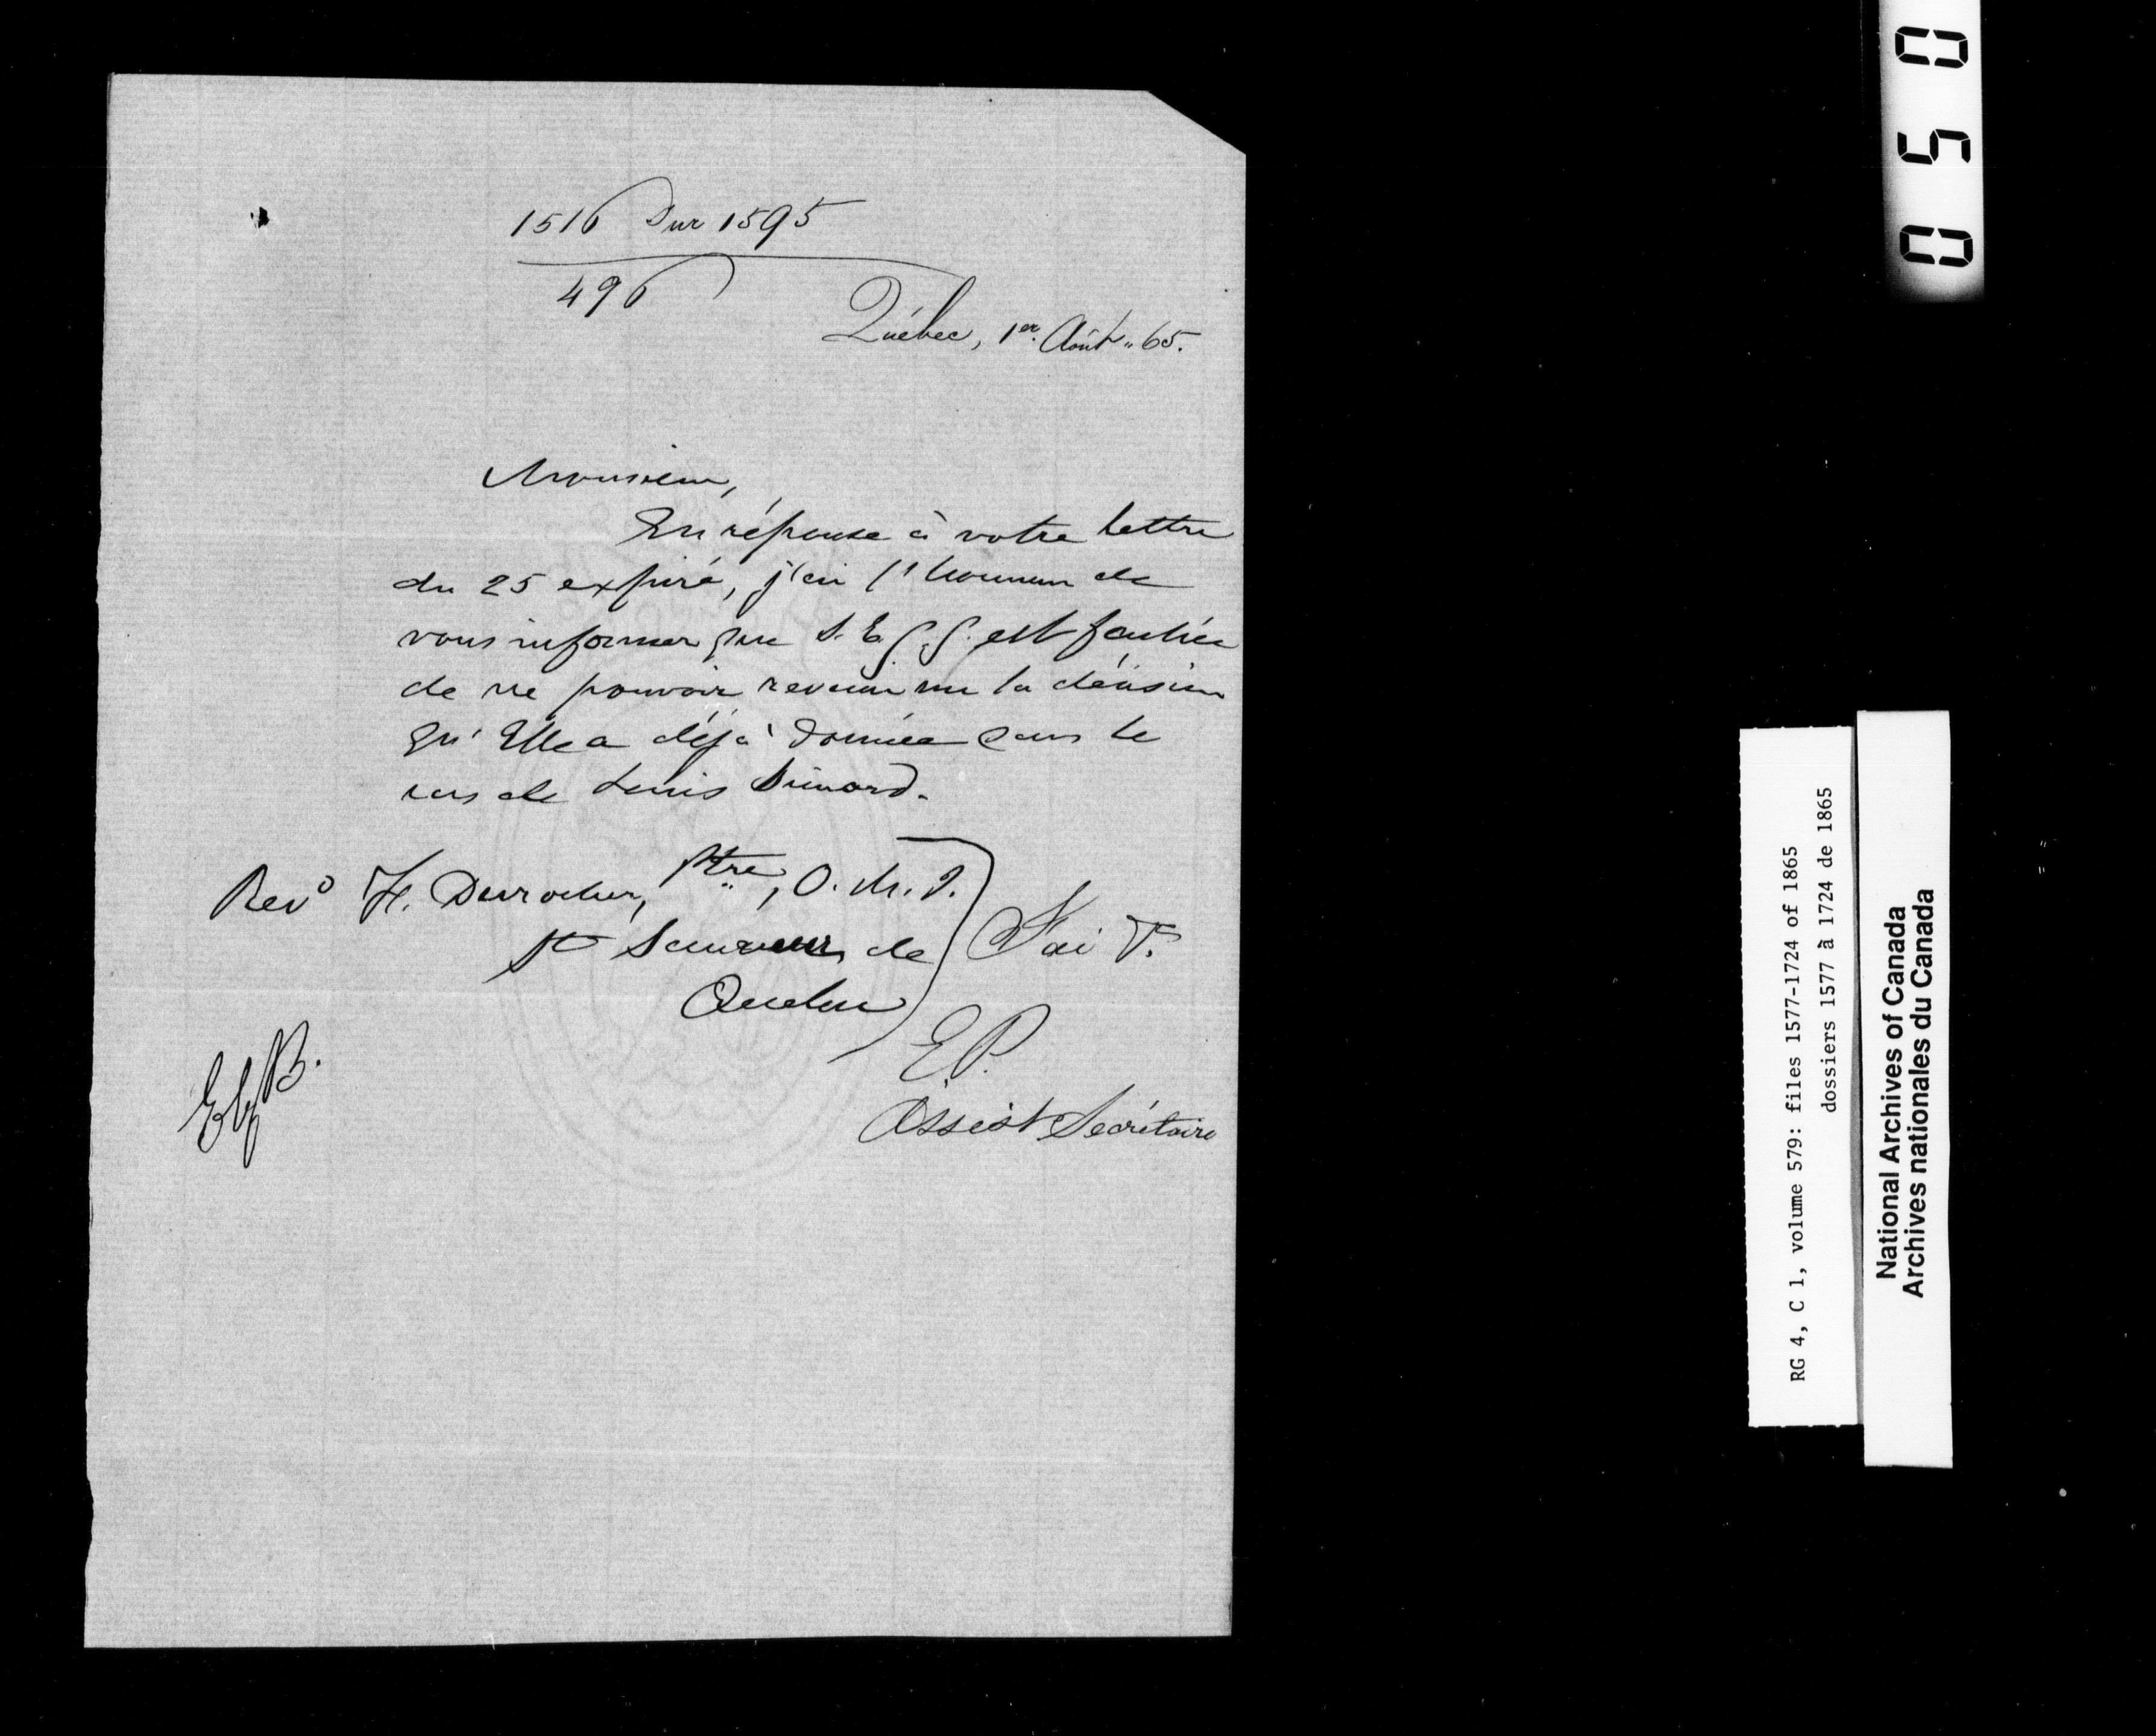 1516 Sur 1595
496
Québec, 1er. Août "65.
Monsieur,
En réponse à votre lettre
du 25 expiré, j'ai l'honneur de
vous informer que S. E. G. G. est fachée
de ne pouvoir revenir sur la décision
qu'Elle a déjà donnée dans le
cas de Louis Simard.
Revd F. Durocher, Ptre, O. M. I.
St Sauveur de
Québec
J'ai &.
E. P.
Assist Secrétaire
050
RG 4, C 1, volume 579: files 1577-1724 of 1865
dossiers 1577 à 1724 de 1865
National Archives of Canada
Archives nationales du Canada